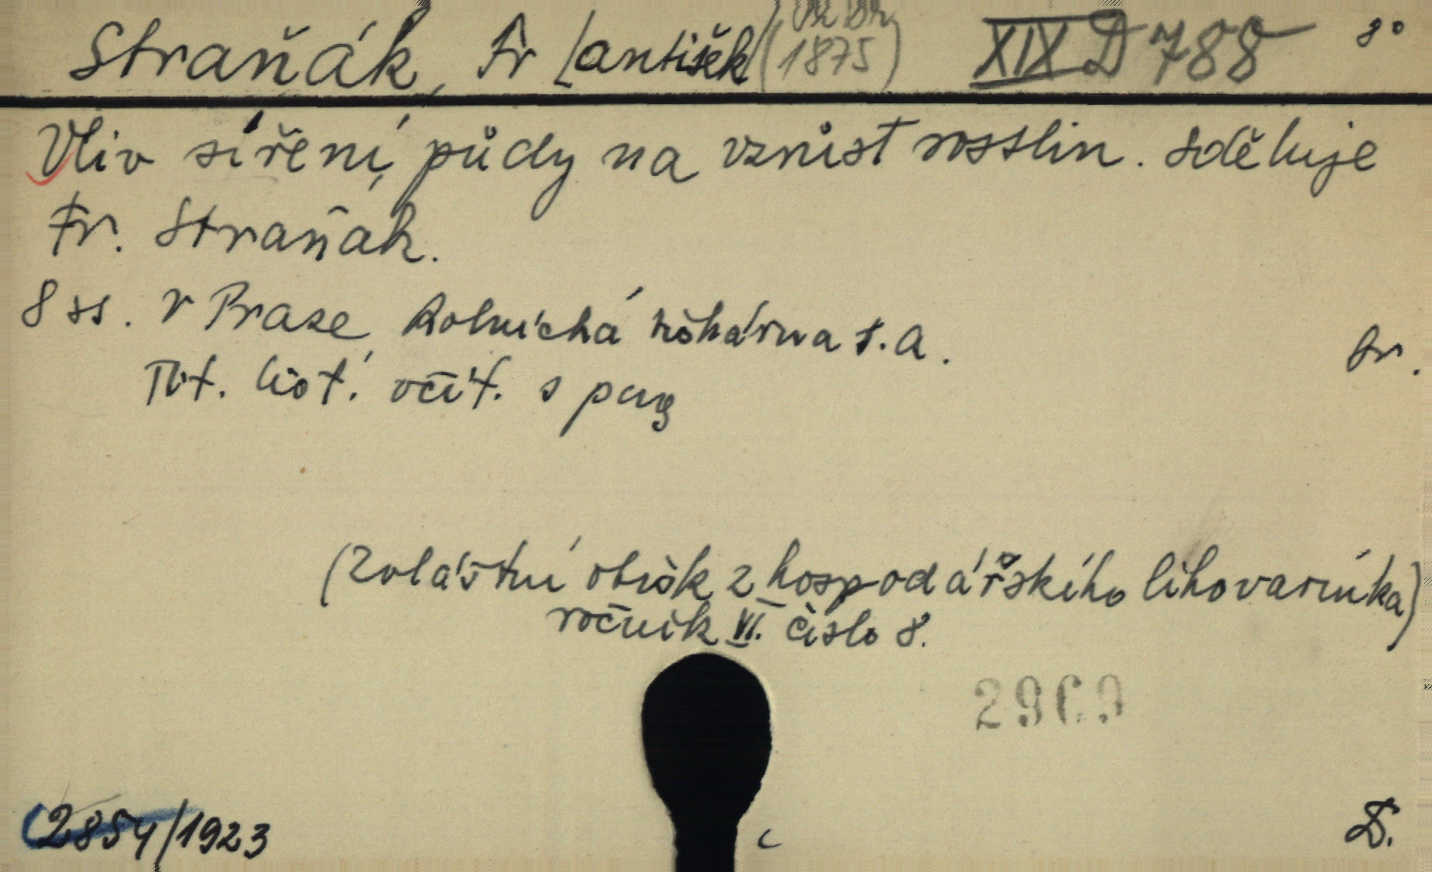 Straňák, Fr [antišek (1875) XIX D 788 8°
Vliv síření půdy na vzrůst rostlin. Sděluje
Fr. Straňák.
8 ss. V Praze Rolnická tiskárna s. a. br.
Tit. list. včít. s pag
(Zvláštní otisk z hospodářského lihovarníka)
ročník VI. číslo 8.
2969
2854/1923 D.